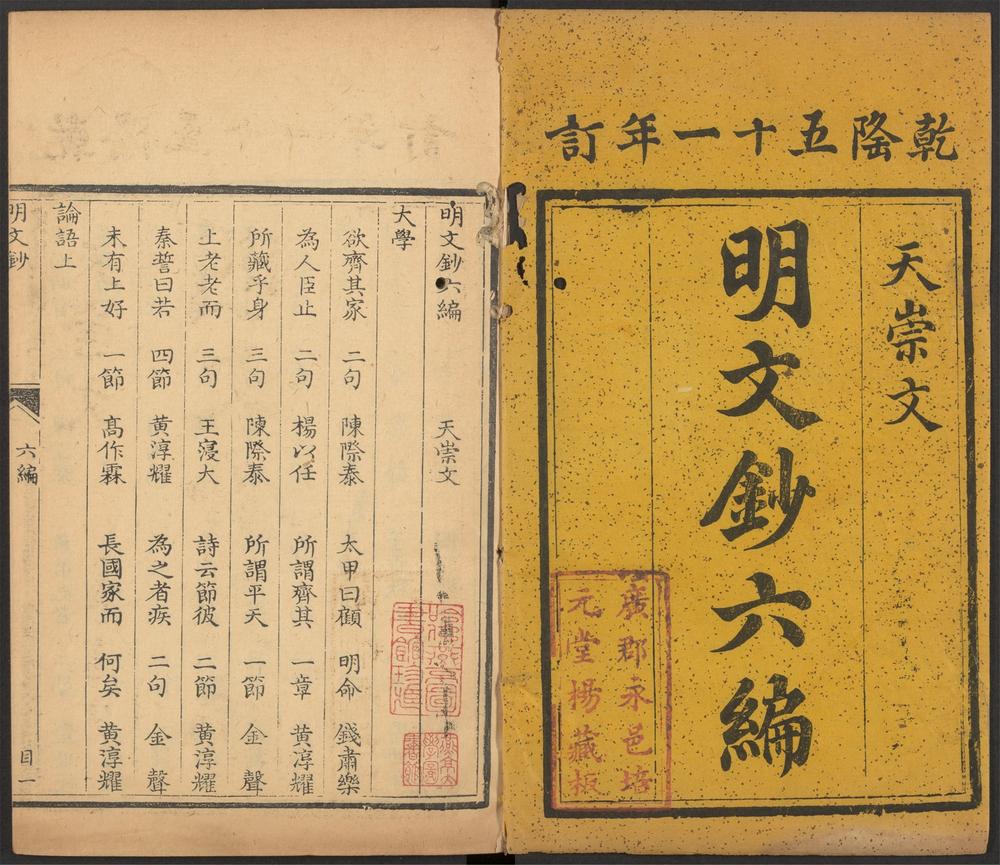 乾隆五十一年訂
天崇文
明文鈔六編
廣郡永邑培
元堂楊藏板
明文鈔六編 天崇文
大學
欲齊其家 二句 陳際泰 太甲曰顧 明命 錢肅樂
為人臣止 二句 楊以任 所謂齊其 一章 黃淳耀
所藏乎身 三句 陳際泰 所謂平天 一節 金聲
上老老而 三句 王寖大 詩云節彼 二節 黃淳耀
秦誓曰若 四節 黃淳耀 為之者疾 二句 金聲
未有上好 一節 高作霖 長國家而 何矣 黃淳耀
論語上
明文鈔 六編 目一